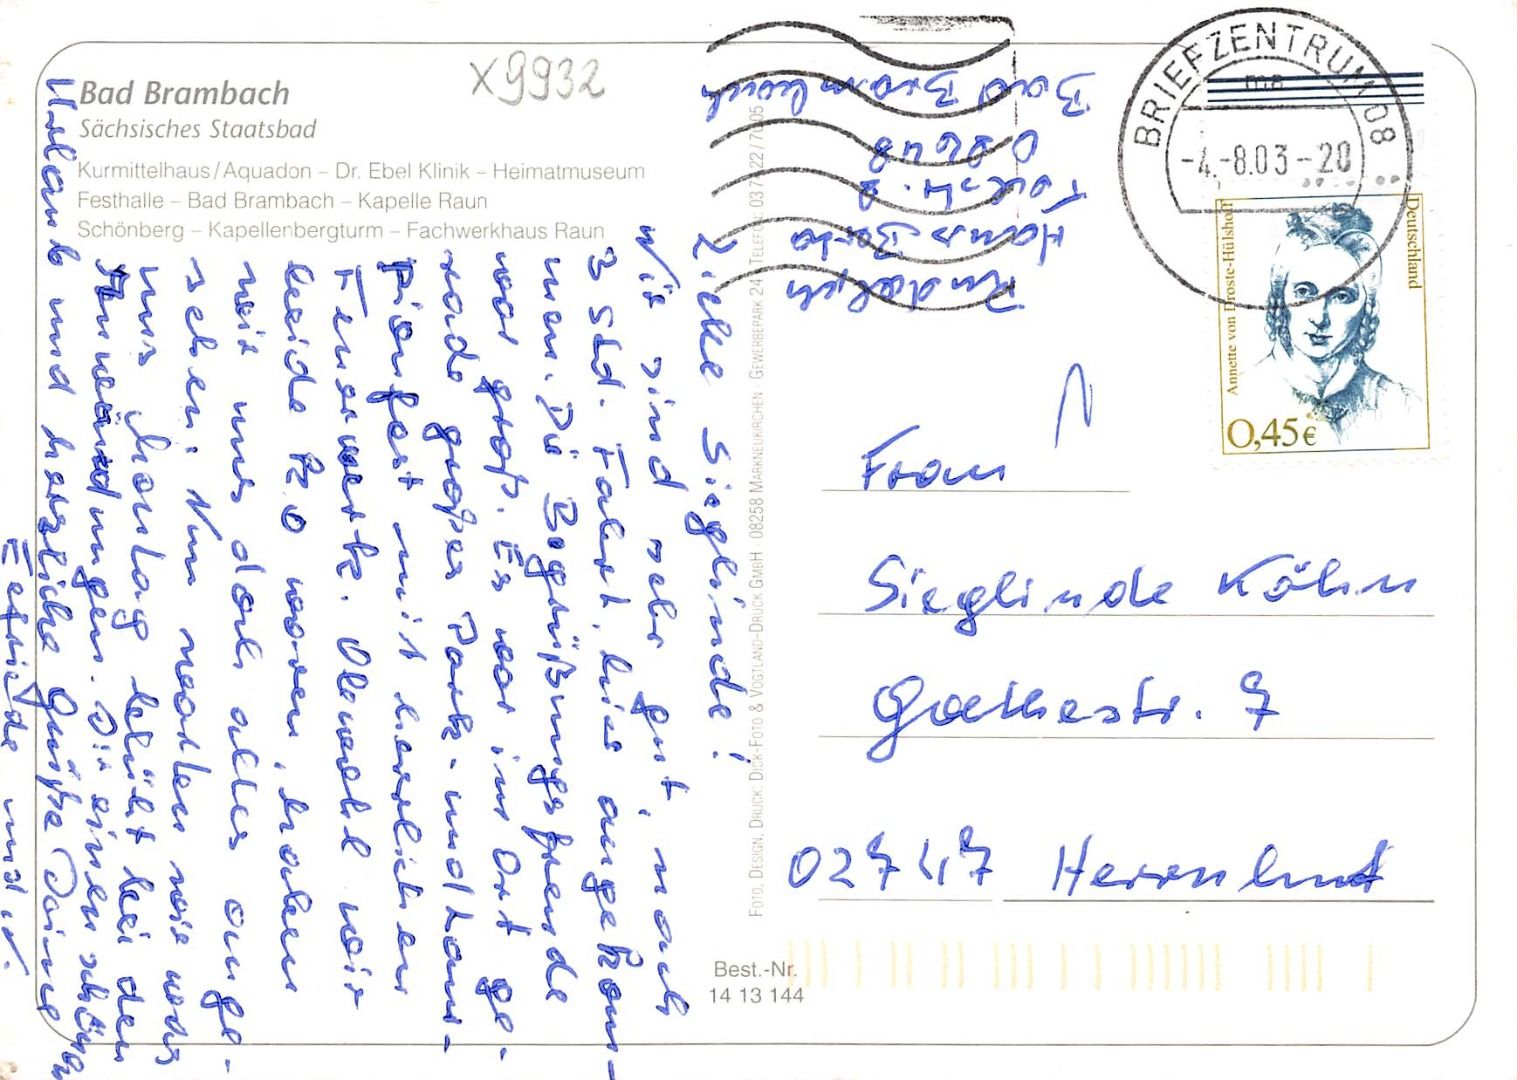 Bad Brambach
Sächsisches Staatsbad
Kurmittelhaus/Aquadon – Dr. Ebel Klinik – Heimatmuseum
Festhalle – Bad Brambach – Kapelle Raun
Schönberg – Kapellenbergturm – Fachwerkhaus Raun
X9932
Liebe Sieglinde!
Wir sind sehr gut, nach
3 Std. Fahrt, hier angekom-
men. Die Begrüßungsfreude
war groß. Es war im Ort ge-
rade großes Park- und Lam-
pionfest mit herrlichem
Feuerwerk. Obwohl wir
beide k.o waren, haben
wir uns doch alles ange-
sehen. Nun warten wir was
uns Montag blüht bei den
Anwendungen. Dir einen schönen
Urlaub und herzliche Grüße Deine
Rudolph
Hans Beda
08648
Bad Brambach
BRIEFZENTRUM 08
-4.-8.03-20
Deutschland
Annette von Droste-Hülshoff
0,45€
Frau
Sieglinde Köhn
Goethestr. 7
02747 Herrnhut
FOTO, DESIGN, DRUCK: DICK-FOTO & VOGTLAND-DRUCK GMBH · 08258 MARKNEUKIRCHEN · GEWERBEPARK 24 · TELEFON: 037
Best.-Nr.
14 13 144